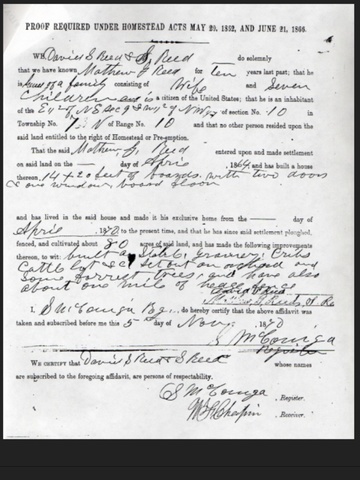 PROOF REQUIRED UNDER HOMESTEAD ACTS MAY 20, 1862, AND JUNE 21, 1866.
WE David S Reed & S. Reed do solemnly
that we have known Mathew J. Reed for ten years last past; that he
a family consisting of Wife and Seven
Children is a citizen of the United States; that he is an inhabitant
of the of section No. 10 in
Township No. 7 N of Range No. 10 and that no other person resided upon the
said land entitled to the right of Homestead or Pre-emption.
That the said Mathew J. Reed entered upon and made settlement
on said land on the day of April, 186 and has built a house
thereon 14 x 20 feet of boards with two doors
& one window board floor
and has lived in the said house and made it his exclusive home from the day of
April 18 to the present time, and that he has since said settlement ploughed,
fenced, and cultivated about 80 acres of said land, and has made the following improvements
thereon, to wit: built a Stable, granary, Cribs
Cattle set out an orchard and
some forrest trees, and have also
about one mile of hedge
David Reed
I, S McConiga do hereby certify that the above affidavit was
taken and subscribed before me this 5 day of Nov, 1870
S McConiga
Register
WE CERTIFY that David S Reed & S Reed whose names
are subscribed to the foregoing affidavit, are persons of respectability.
S McConiga, Register.
Wm Chapin, Receiver.